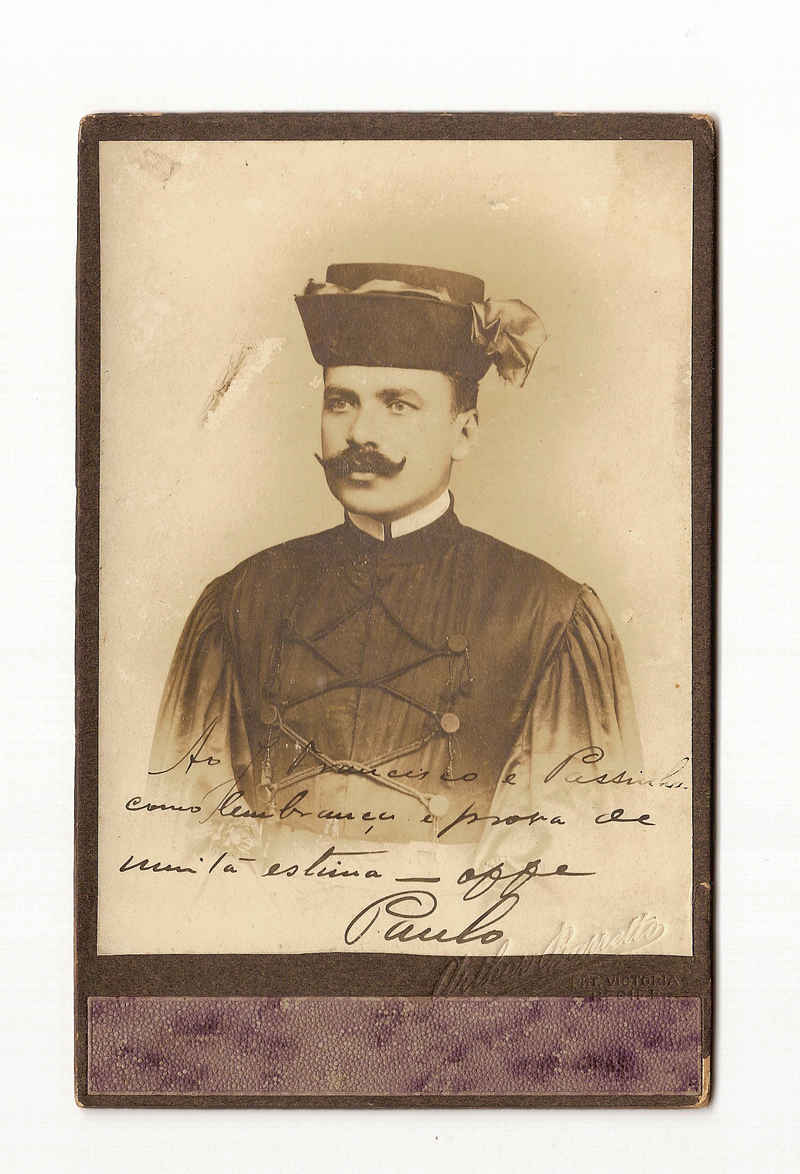 Ao Francisco e Passinho
como lembrança e prova de
muita estima — offe
Paulo
VICTORIA